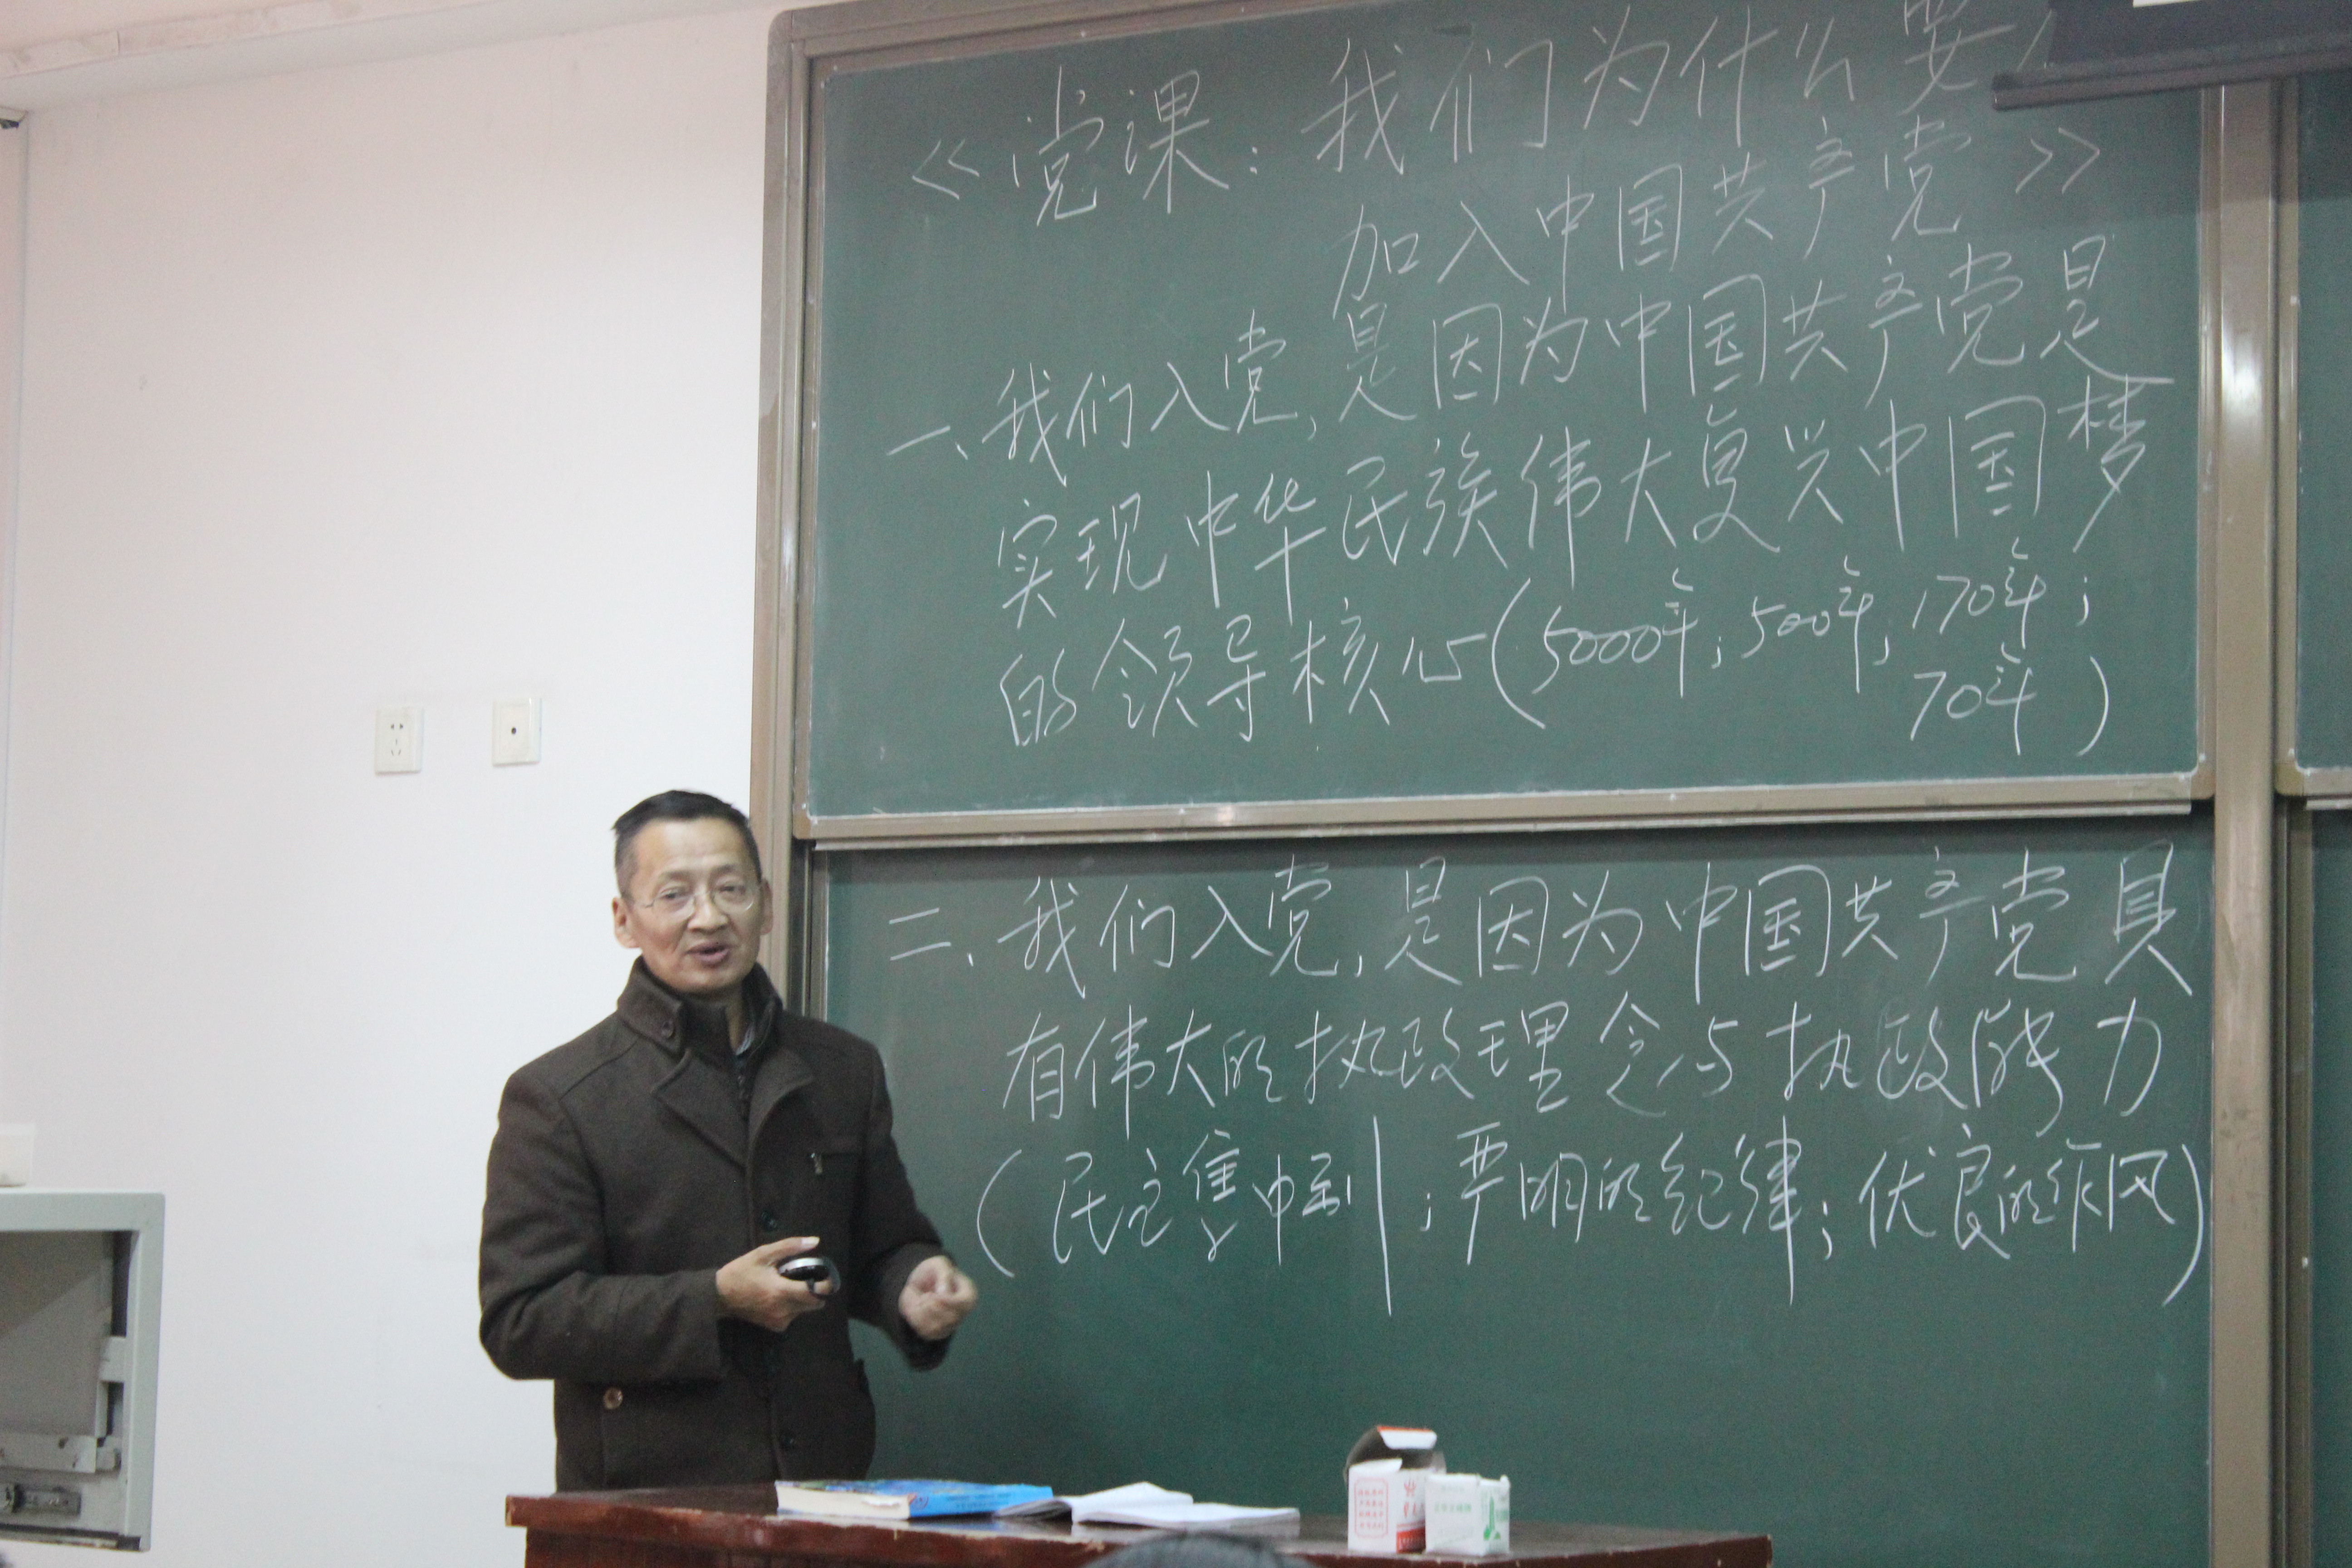 《党课：我们为什么要
加入中国共产党》
一、我们入党，是因为中国共产党是
实现中华民族伟大复兴中国梦
的领导核心（5000年；500年；170年；
70年）
二、我们入党，是因为中国共产党具
有伟大的执政理念与执政能力
（民主集中制；严明的纪律；优良的作风）